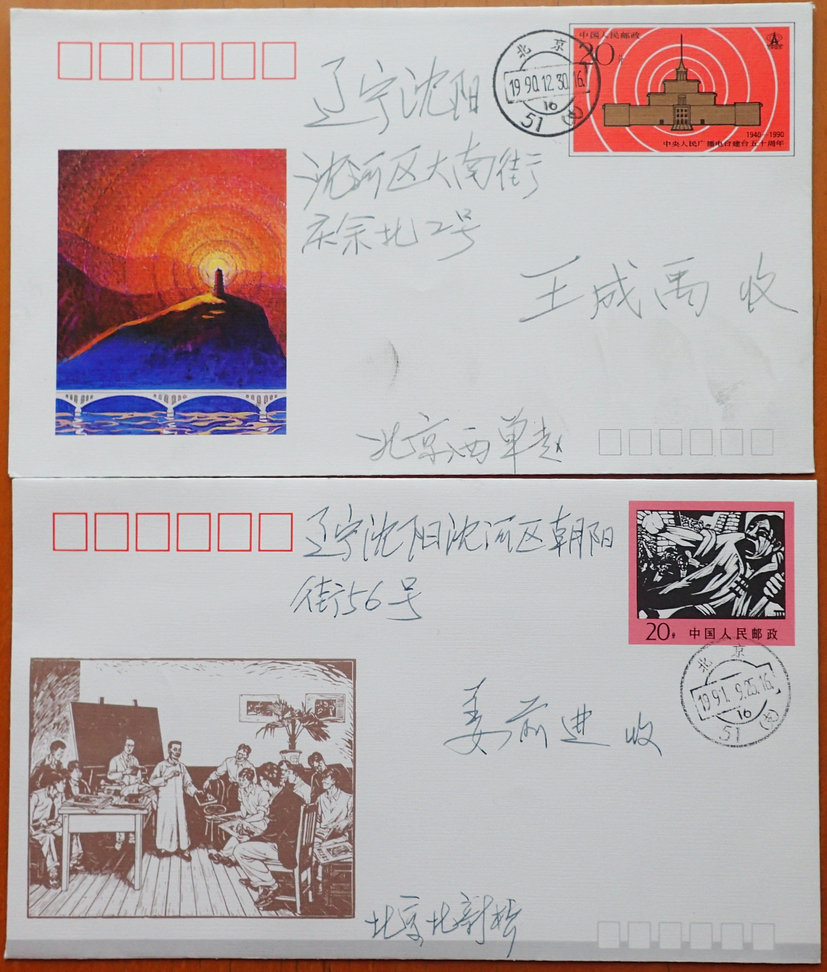 中国人民邮政
20分
1940—1990
中央人民广播电台建台五十周年
北京
1990.12.30.16
16
51(支)
辽宁沈阳
沈河区大南街
庆余北2号
王成禹 收
北京西单赵
辽宁沈阳沈河区朝阳
街56号
20分 中国人民邮政
北京
1991.9.25.16
16
51(支)
姜前进 收
北京北新桥